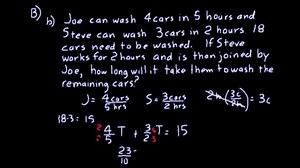 B)
b) Joe can wash 4 cars in 5 hours and
Steve can wash 3 cars in 2 hours. 18
cars need to be washed. If Steve
works for 2 hours and is then joined by
Joe, how long will it take them to wash the
remaining cars?
J = 4 cars / 5 hrs S = 3 cars / 2 hrs 2h (3c / 2h) = 3c
18-3 = 15
2 · 4/5 T + 3/2 T · 5 = 15
23/10